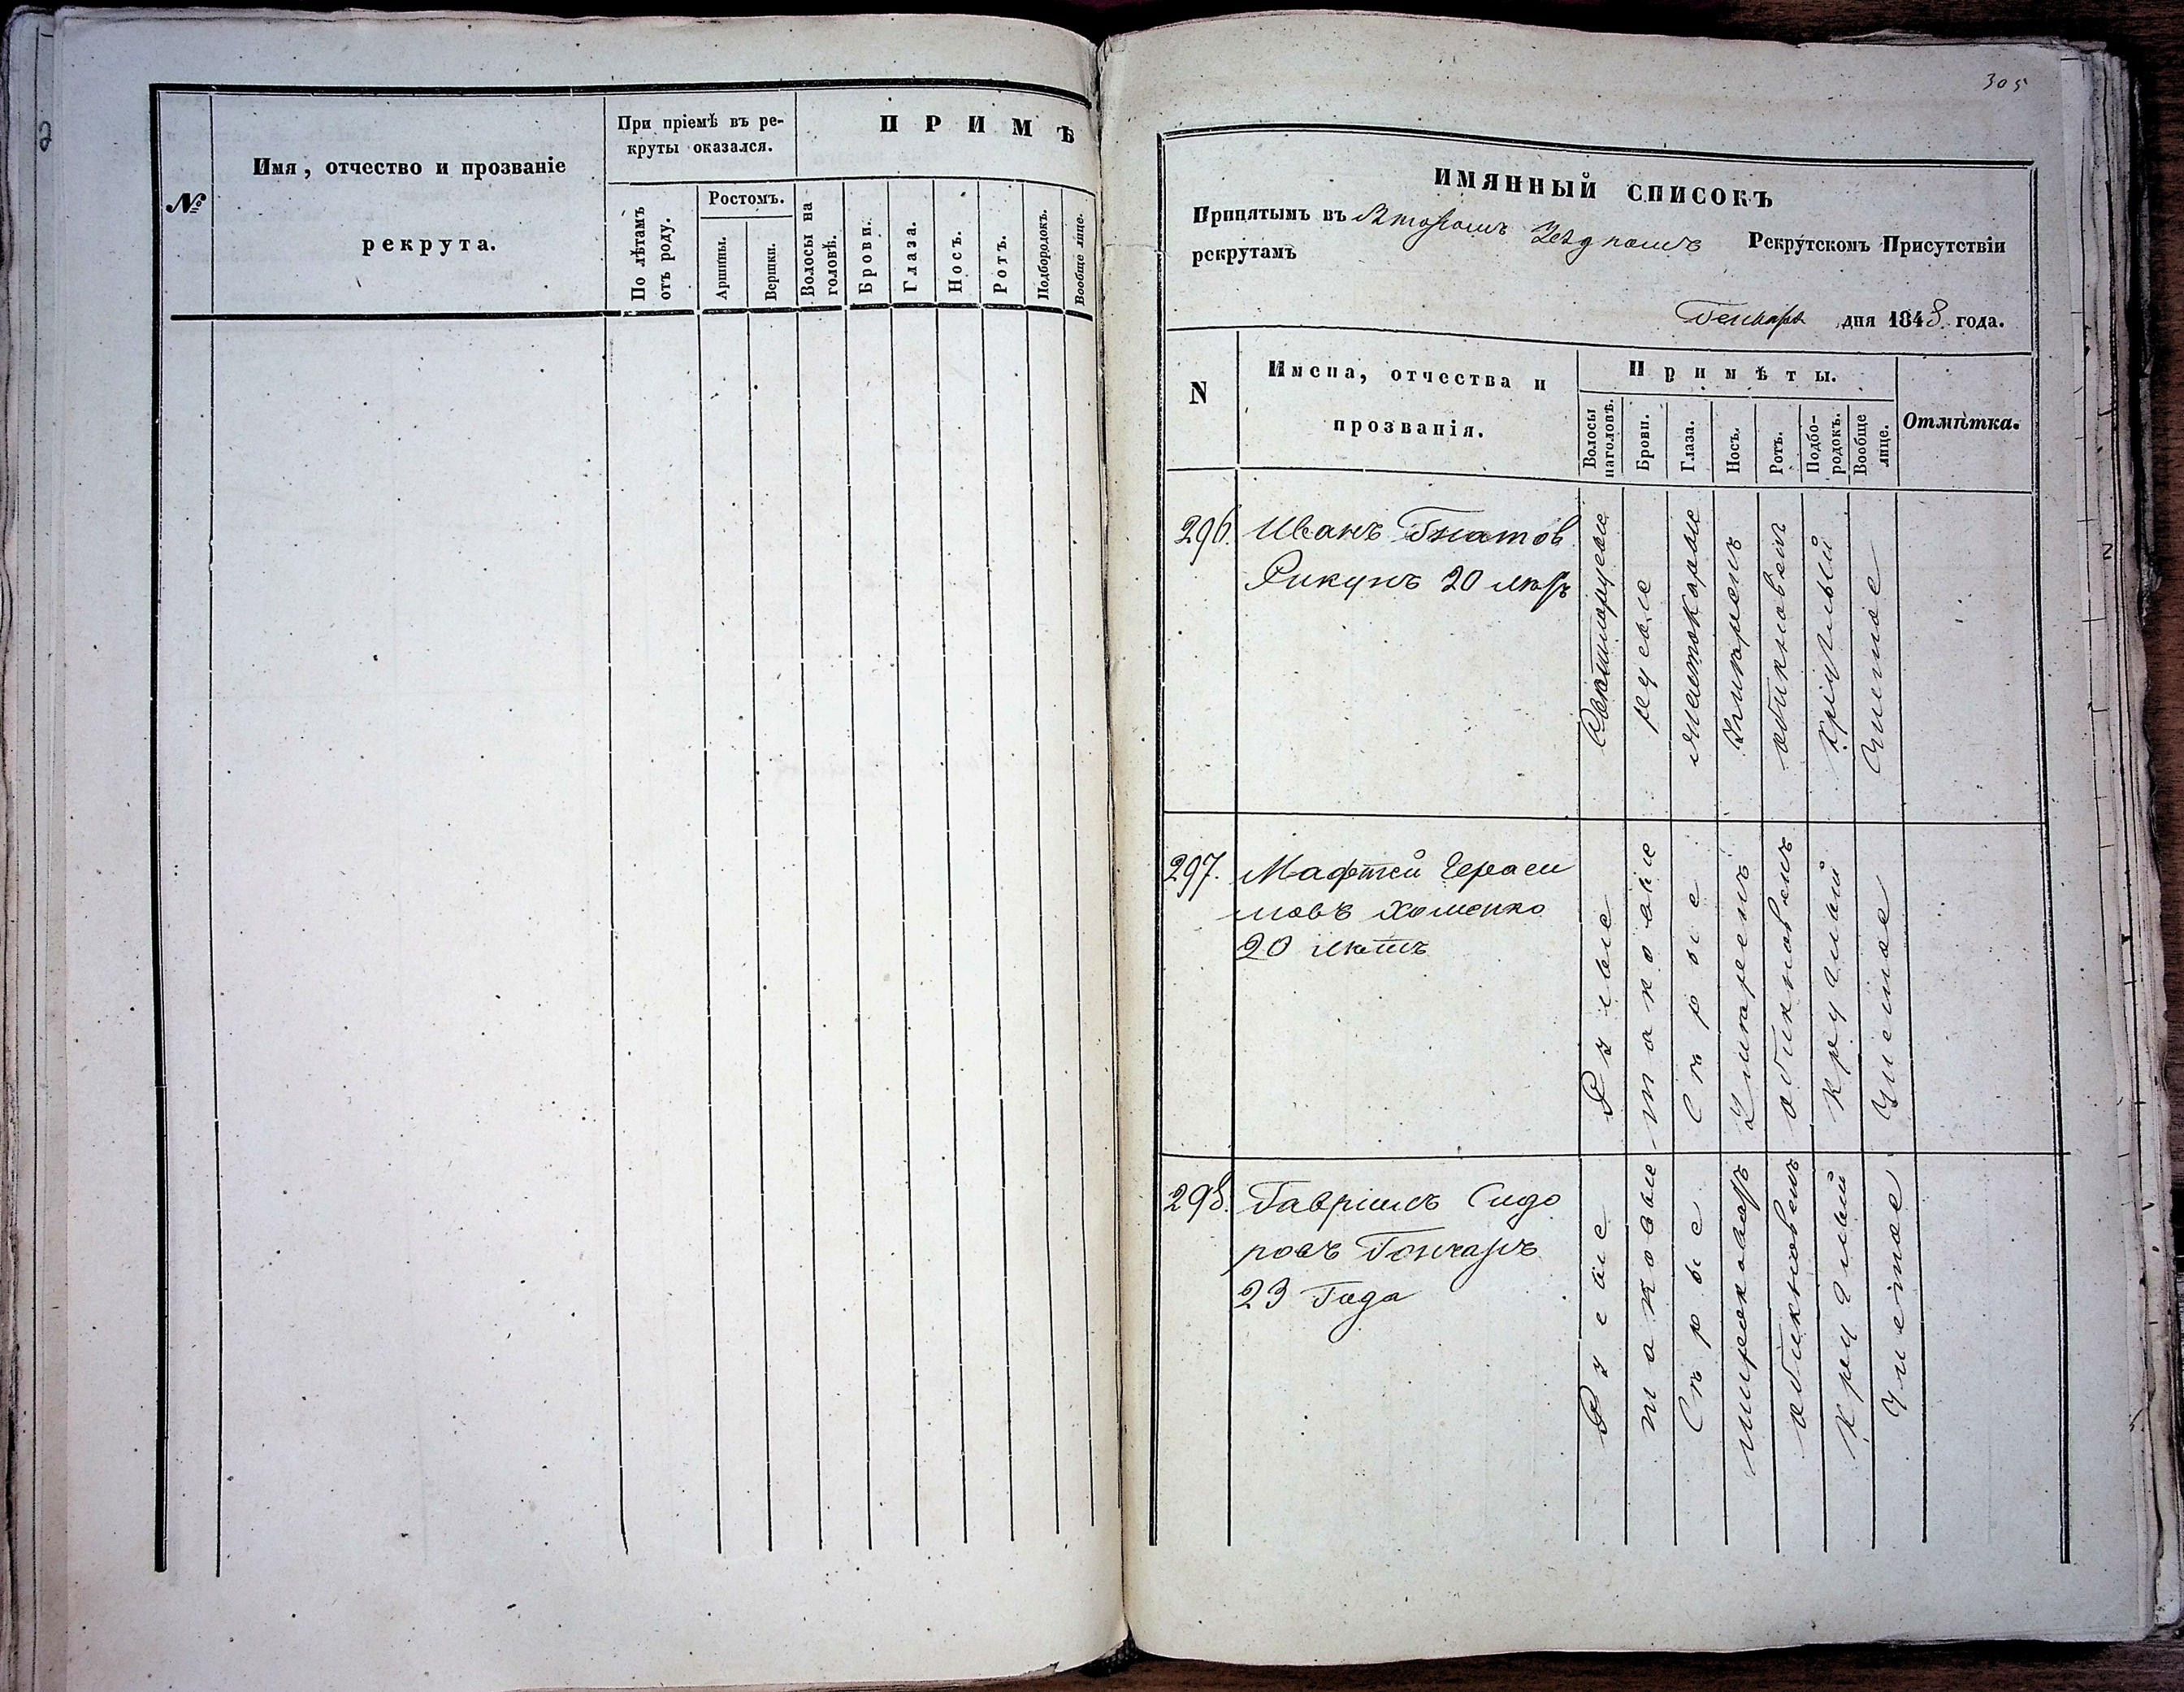 №
Имя, отчество и прозваніе
рекрута.
При пріемѣ въ ре-
круты оказался.
По лѣтамъ
отъ роду.
Ростомъ.
Аршины.
Вершки.
ПРИМѢ
Волосы на
головѣ.
Брови.
Глаза.
Носъ.
Ротъ.
Подбородокъ.
Вообще лице.
305
ИМЯННЫЙ СПИСОКЪ
Принятымъ въ Второмъ Уездномъ Рекрутскомъ Присутствіи
рекрутамъ
Генваря дня 1848 года.
N
Имена, отчества и
прозванія.
Примѣты.
Волосы
наголовѣ.
Брови.
Глаза.
Носъ.
Ротъ.
Подбо-
родокъ.
Вообще
лице.
Отмѣтка.
296. Иванъ Гнатов
Рикунъ 20 лѣтъ
Светлорусые
русые
желтокарые
Умѣренъ
обикновенъ
Круглый
Чистое
297. Мафтей Гераси
мовъ Хоменко
20 лѣтъ
Русые
таковые
Сѣрые
Умѣренъ
обикновенъ
Круглый
Чистое
298. Гавріилъ Сидо
ровъ Гончаръ
23 Года
Русые
таковые
Сѣрые
широковатъ
обикновенъ
Круглый
Чистое